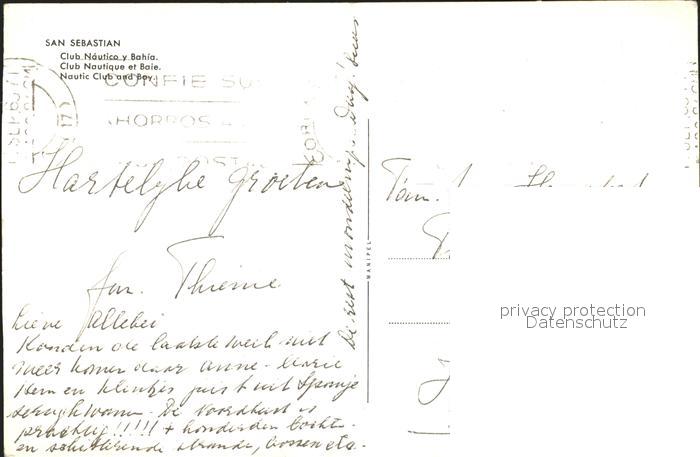 SAN SEBASTIAN
Club Náutico y Bahía.
Club Nautique et Baie.
Nautic Club and Bay.
CONFIE SU
AHORROS A
Hartelyke groeten
fam. Thieme
Lieve Allebei
Konden de laatste week niet
meer komen daar Anne-Marie
Hem en kleintjes juist uit Spanje
terugkwam. De Noordkust is
prachtig!!!!! + honderden bochten
en schitterende stranden, bossen etc.
De rest mondeling. Dag!
MANIPEL
Fam.
privacy protection
Datenschutz